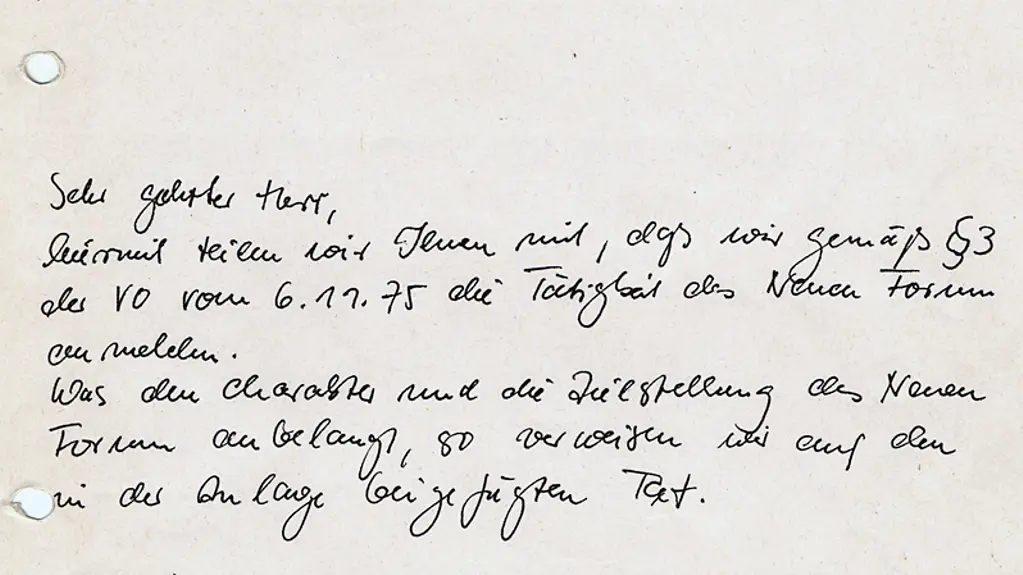 Sehr geehrter Herr,
hiermit teilen wir Ihnen mit, daß wir gemäß § 3
der VO vom 6.11.75 die Tätigkeit des Neuen Forum
anmelden.
Was den Charakter und die Zielstellung des Neuen
Forum anbelangt, so verweisen wir auf den
in der Anlage beigefügten Text.